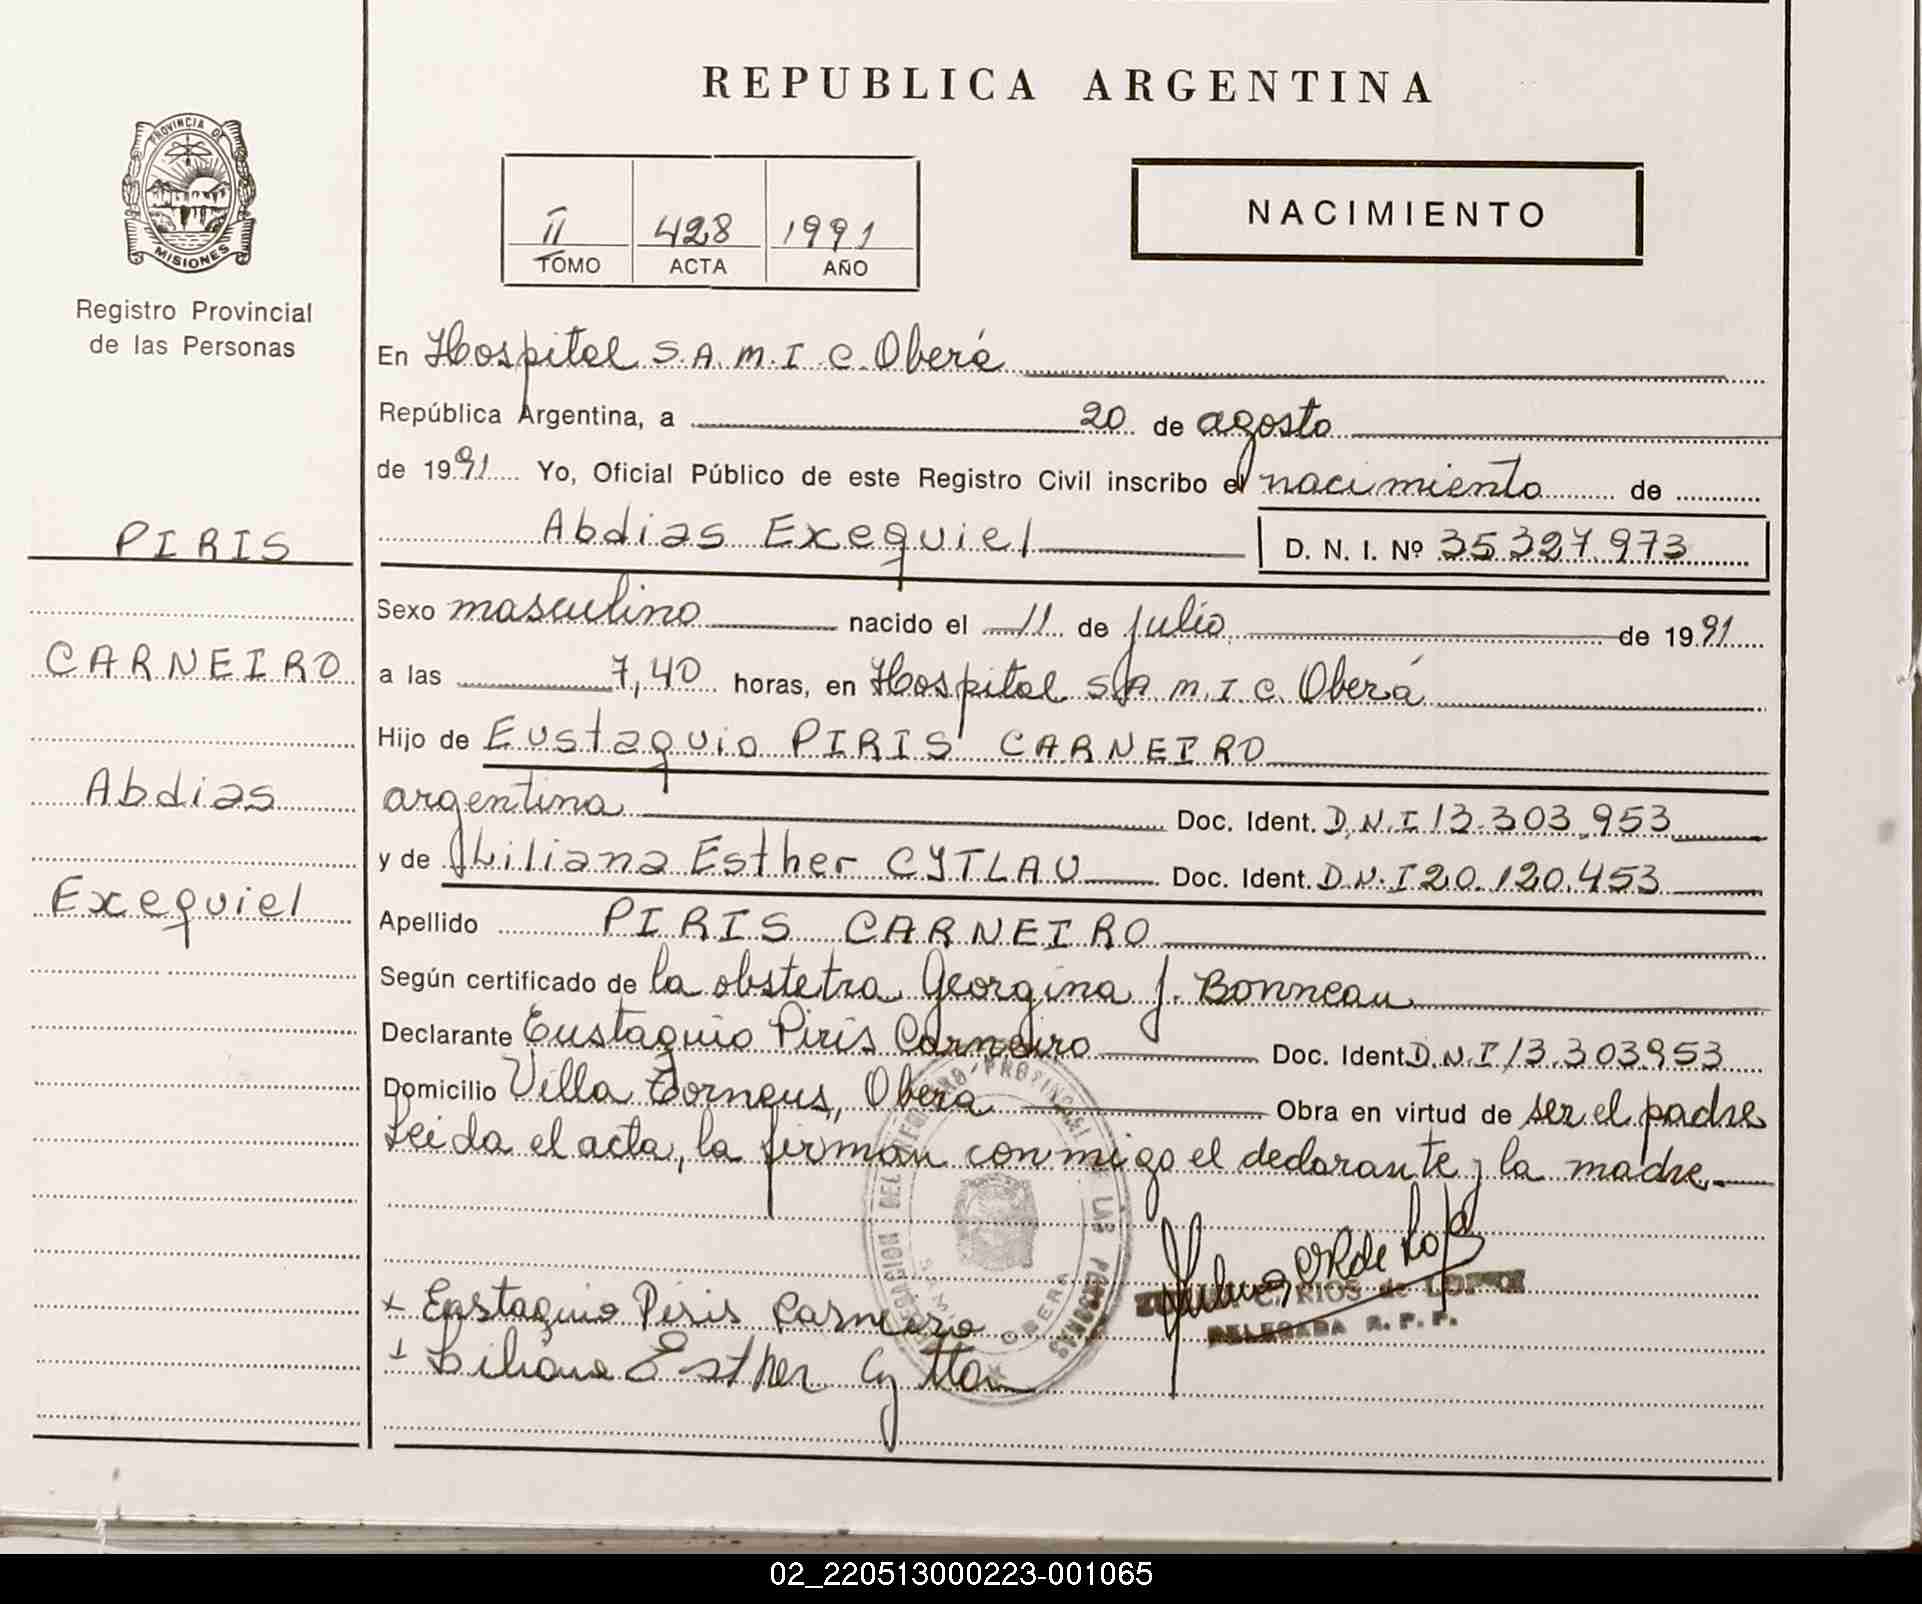 REPUBLICA ARGENTINA
PROVINCIA DE
MISIONES
Registro Provincial
de las Personas
II 428 1991
TOMO ACTA AÑO
NACIMIENTO
En Hospital S.A.M.I.C. Oberá
República Argentina, a 20 de agosto
de 1991 Yo, Oficial Público de este Registro Civil inscribo el nacimiento de
Abdias Exequiel D. N. I. Nº 35327973
PIRIS
CARNEIRO
Abdias
Exequiel
Sexo masculino nacido el 11 de julio de 1991
a las 7,40 horas, en Hospital S.A.M.I.C. Oberá
Hijo de Eustaquio PIRIS CARNEIRO
argentina Doc. Ident. D.N.I 13.303.953
y de Liliana Esther CYTLAU Doc. Ident. D.N.I 20.120.453
Apellido PIRIS CARNEIRO
Según certificado de la obstetra Georgina J. Bonneau
Declarante Eustaquio Piris Carneiro Doc. Ident. D.N.I 13.303953
Domicilio Villa Oberá Obra en virtud de ser el padre
Leida el acta, la firman conmigo el declarante y la madre.-
DELEGACION DEL REGISTRO PROVINCIAL DE LAS PERSONAS
OBERA
C. RIOS de LOPEZ
DELEGADA R. P. P.
Eustaquio Piris Carneiro
Liliana Esther
02_220513000223-001065